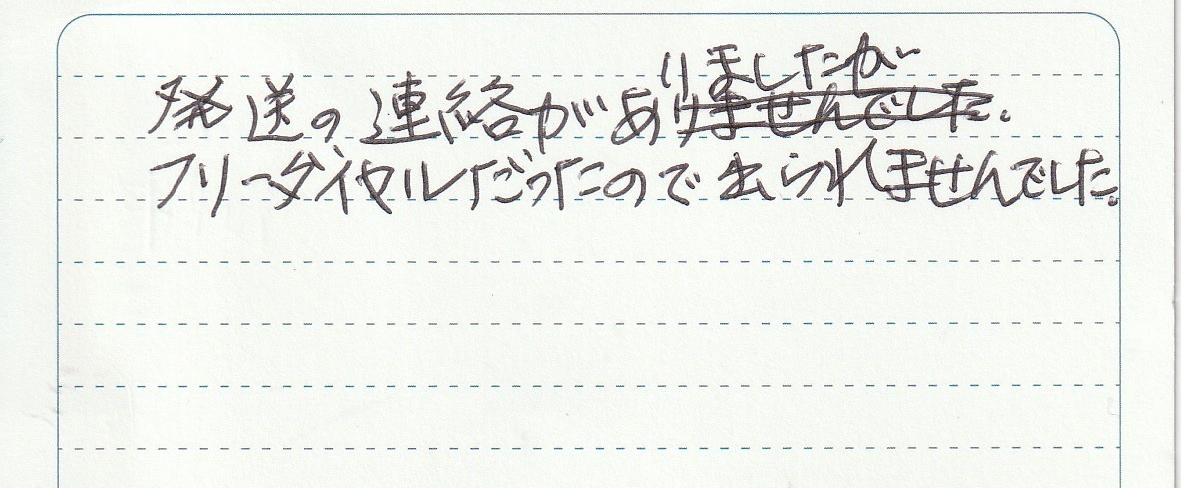 発送の連絡がありましたが
りませんでした。
フリーダイヤルだったので出られませんでした。